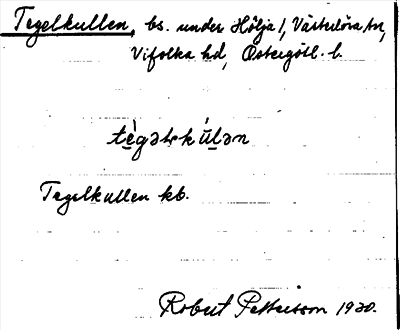 Tegelkullen, bs. under Hölja 1, Västerlösa sn,
Vifolka hd, Östergötl. l.
tègəlkúlən
Tegelkullen kb.
Robert Pettersson 1930.